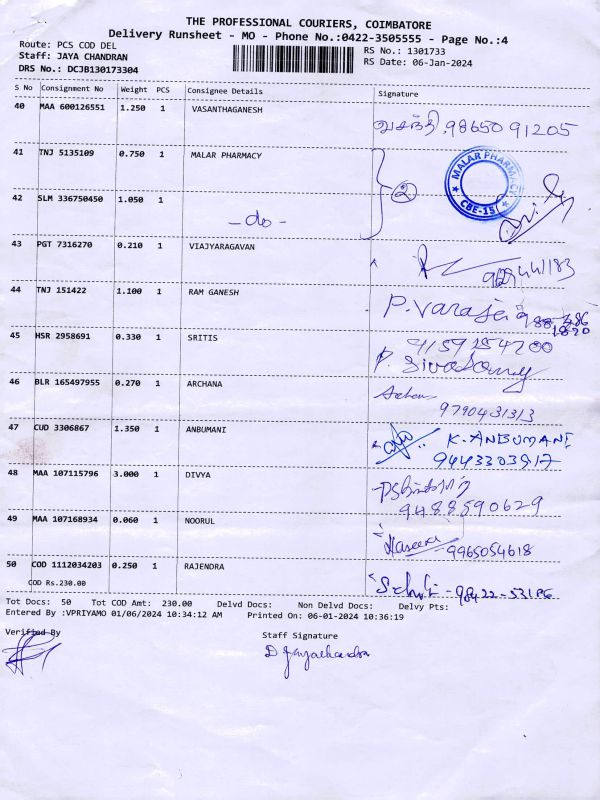 THE PROFESSIONAL COURIERS, COIMBATORE
Delivery Runsheet - MO - Phone No.:0422-3505555 - Page No.:4
Route: PCS COD DEL
RS No.: 1301733
Staff: JAYA CHANDRAN
RS Date: 06-Jan-2024
DRS No.: DCJB130173304
S No Consignment No Weight PCS Consignee Details Signature
40 MAA 600126551 1.250 1 VASANTHAGANESH
வசந்தி 98650 91205
41 TNJ 5135109 0.750 1 MALAR PHARMACY
MALAR PHARMACY
CBE-15
42 SLM 336750450 1.050 1
-do-
2
43 PGT 7316270 0.210 1 VIAJYARAGAVAN
44 TNJ 151422 1.100 1 RAM GANESH
45 HSR 2958691 0.330 1 SRITIS
P. Sivasamy
46 BLR 165497955 0.270 1 ARCHANA
9790431313
47 CUD 3306867 1.350 1 ANBUMANI
K. ANBUMANI
9443303917
48 MAA 107115796 3.000 1 DIVYA
9488590629
49 MAA 107168934 0.060 1 NOORUL
9965054618
50 COD 1112034203 0.250 1 RAJENDRA
COD Rs.230.00
Tot Docs: 50 Tot COD Amt: 230.00 Delvd Docs: Non Delvd Docs: Delvy Pts:
Entered By :VPRIYAMO 01/06/2024 10:34:12 AM Printed On: 06-01-2024 10:36:19
Verified By
Staff Signature
D Jayachandran